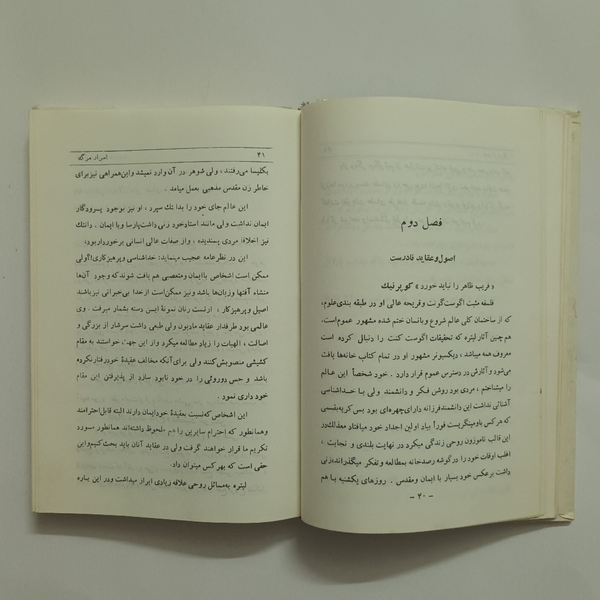 فصل دوم
اصول و عقاید نادرست
« فریب ظاهر را نباید خورد » کوپرنیک
فلسفه مثبت اگوست‌کونت و قریحه عالی او در طبقه بندی علوم،
که از ساختمان کلی عالم شروع و بانسان ختم شده مشهور عموم است.
هم چنین آثار لیتره که تحقیقات اگوست کنت را دنبال کرده است
معروف همه میباشد، دیکسیونر مشهور او در تمام کتاب خانه‌ها یافت
می‌شود و آثارش در دسترس عموم قرار دارد. خود شخصاً این عالم
را میشناختم، مردی بود روشن فکر و دانشمند ولی با خداشناسی
آشنائی نداشت این دانشمند فرزانه دارای چهره‌ای بود بس کریه بقسمی
که هر کس باو مینگریست فوراً بیاد او این اجداد خود میافتاد معذلک در
این قالب ناموزون روحی زندگی میکرد در نهایت بلندی و نجابت،
اغلب اوقات خود را در گوشه رصدخانه بمطالعه و تفکر میگذراند زنی
داشت برعکس خود بسیار با ایمان و مقدس. روزهای یکشنبه با هم
- ۴۰ -
۴۱ اسرار مرگ
بکلیسا می‌رفتند، ولی شوهر در آن وارد نمیشد و این همراهی نیز برای
خاطر زن مقدس مذهبی بعمل میامد.
این عالم جای خود را بدا تک سپرد، او نیز بوجود پروردگار
ایمان نداشت ولی مانند استاد خود زنی داشت پارسا و با ایمان. دانتک
نیز اخلاقا مردی پسندیده، و از صفات عالی انسانی برخوردار بود؛
این در نظر عامه عجیب مینماید: خداشناسی و پرهیزکاری! ولی
ممکن است اشخاص با ایمان و متعصبی هم یافت شوند که وجود آن‌ها
منشاء آفتها و زیان‌ها باشد و نیز ممکن است از خدا بی‌خبرانی نیز باشند
اصیل و پرهیزکار، ارنست رنان نمونهٔ این دسته بشمار میرفت. وی
عالمی بود طرفدار عقاید مادیون ولی طبعی داشت سرشار از بزرگی و
اصالت، الهیات را زیاد مطالعه میکرد و از این جهت خواستند به مقام
کشیشی منصوبش کنند ولی برای آنکه مخالف عقیدهٔ خود رفتار نکرده
باشد و حس دوروئی را در خود نابود سازد از پذیرفتن این مقام
خود داری نمود.
این اشخاص که نسبت بعقیدهٔ خود ایمان دارند البته قابل احترامند
و همانطور که احترام سایرین را هم ملحوظ داشته‌اند همانطور مورد
تکریم ما قرار خواهند گرفت ولی در عقاید آنان باید بحث کنیم و این
حقی است که بهر کس میتوان داد.
لیتره به مسائل روحی علاقه زیادی ابراز میداشت و در این باره